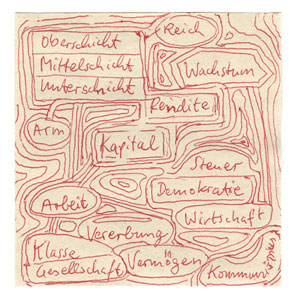 Reich
Oberschicht
Mittelschicht
Unterschicht
Wachstum
Rendite
Arm
Kapital
Steuer
Demokratie
Arbeit
Wirtschaft
Vererbung
Klasse
Gesellschaft
Vermögen